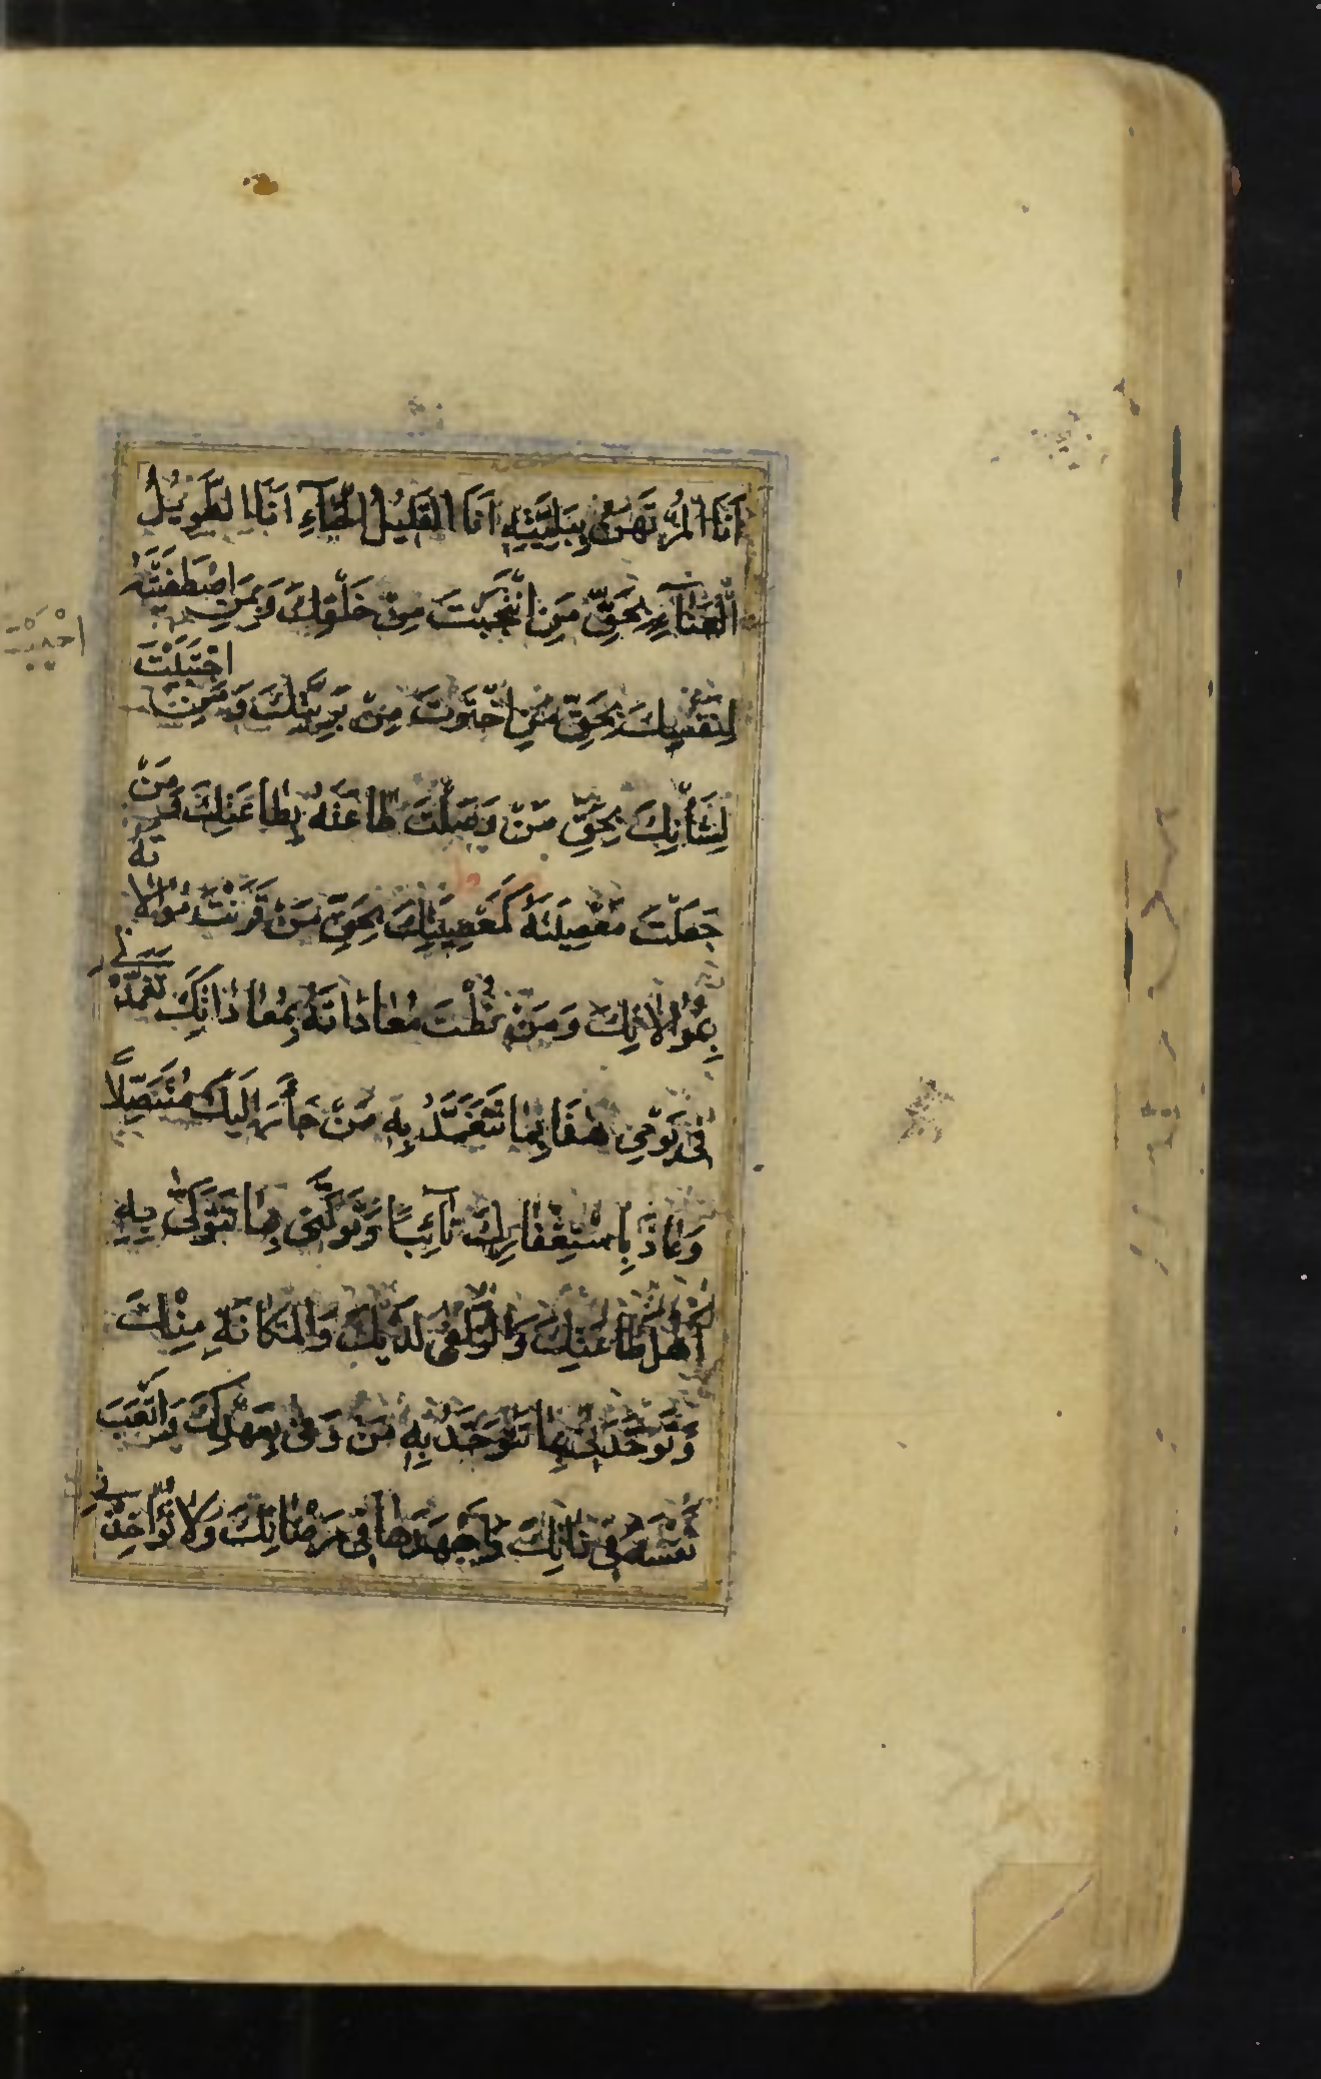 أَنَا الْمُرْتَهَنُ بِبَلِيَّتِهِ أَنَا الْقَلِيلُ الْحَيَآءِ أَنَا الطَّوِيلُ
الْعَنَآءِ بِحَقِّ مَنِ انْتَجَبْتَ مِنْ خَلْقِكَ وَبِمَنِ اصْطَفَيْتَهُ
لِنَفْسِكَ بِحَقِّ مَنِ اخْتَرْتَ مِنْ بَرِيَّتِكَ وَمَنِ اجْتَبَيْتَ
لِشَأْنِكَ بِحَقِّ مَنْ وَصَلْتَ طَاعَتَهُ بِطَاعَتِكَ وَمَنْ
جَعَلْتَ مَعْصِيَتَهُ كَمَعْصِيَتِكَ بِحَقِّ مَنْ قَرَنْتَ مُوَالَاتَهُ
بِمُوَالَاتِكَ وَمَنْ نُطْتَ مُعَادَاتَهُ بِمُعَادَاتِكَ تَغَمَّدْنِي
فِي يَوْمِي هٰذَا بِمَا تَتَغَمَّدُ بِهِ مَنْ جَأَرَ إِلَيْكَ مُتَنَصِّلًا
وَعَاذَ بِاسْتِغْفَارِكَ تَآئِبًا وَتَوَلَّنِي بِمَا تَتَوَلَّى بِهِ
أَهْلَ طَاعَتِكَ وَالزُّلْفَى لَدَيْكَ وَالْمَكَانَةِ مِنْكَ
وَتَوَحَّدْنِي بِمَا تَتَوَحَّدُ بِهِ مَنْ وَفَى بِعَهْدِكَ وَأَتْعَبَ
نَفْسَهُ فِي ذَاتِكَ وَأَجْهَدَهَا فِي مَرْضَاتِكَ وَلَا تُؤَاخِذْنِي